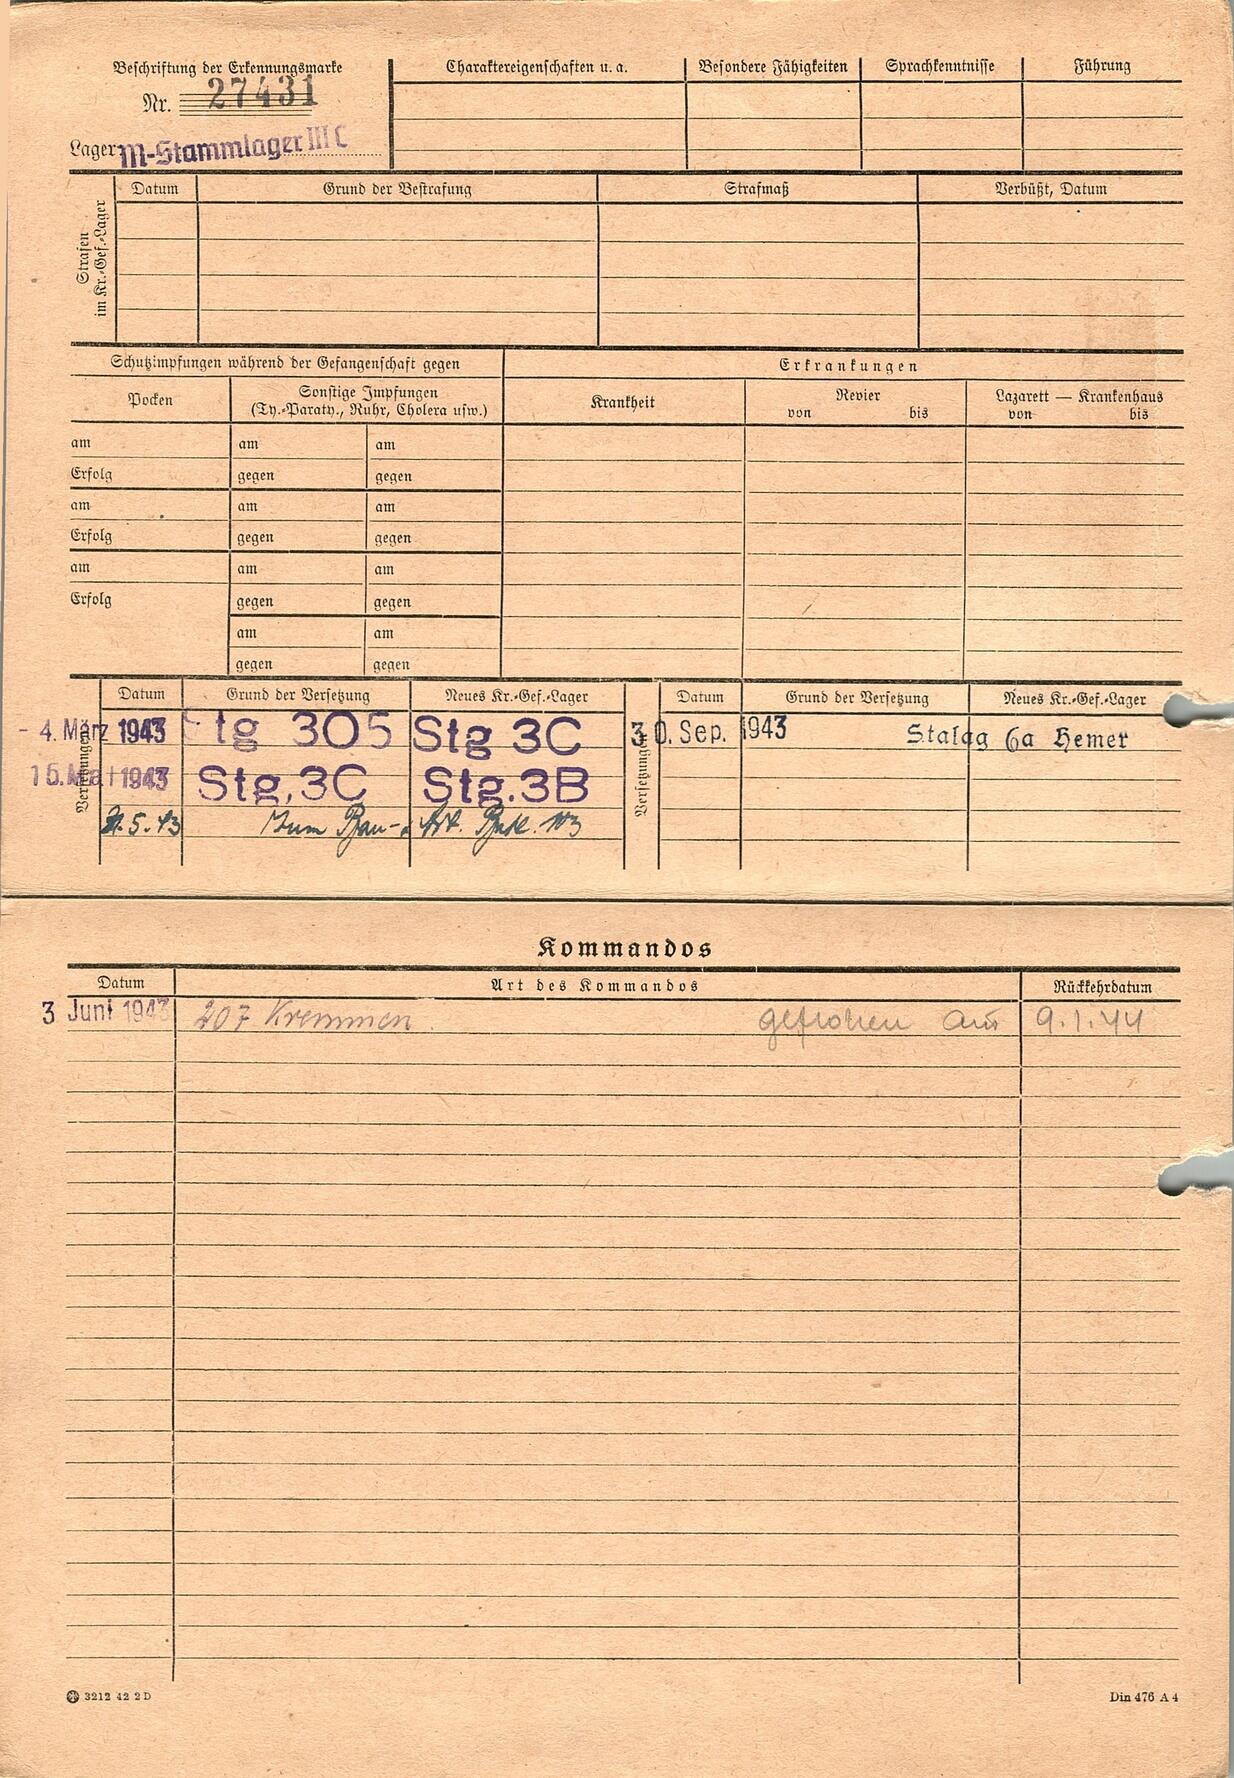 Beschriftung der Erkennungsmarke
Nr. 27431
Lager M-Stammlager III C
Charaktereigenschaften u. a.
Besondere Fähigkeiten
Sprachkenntnisse
Führung
Strafen im Kr.-Gef.-Lager
Datum
Grund der Bestrafung
Strafmaß
Verbüßt, Datum
Schutzimpfungen während der Gefangenschaft gegen
Erkrankungen
Pocken
Sonstige Impfungen
(Ty.-Paraty., Ruhr, Cholera usw.)
Krankheit
Revier
von bis
Lazarett — Krankenhaus
von bis
am am am
Erfolg gegen gegen
am am am
Erfolg gegen gegen
am am am
Erfolg gegen gegen
am am
gegen gegen
Versetzungen
Datum Grund der Versetzung Neues Kr.-Gef.-Lager
- 4. März 1943 Stg 305 Stg 3C
15. Mai 1943 Stg. 3C Stg. 3B
31.5.43 Zum Bau- u. Arb. Batl.
Versetzungen
Datum Grund der Versetzung Neues Kr.-Gef.-Lager
30. Sep. 1943 Stalag 6a Hemer
Kommandos
Datum Art des Kommandos Rückkehrdatum
3 Juni 1943 207 Kremmen. geflohen am 9.1.44
3212 42 2 D
Din 476 A 4